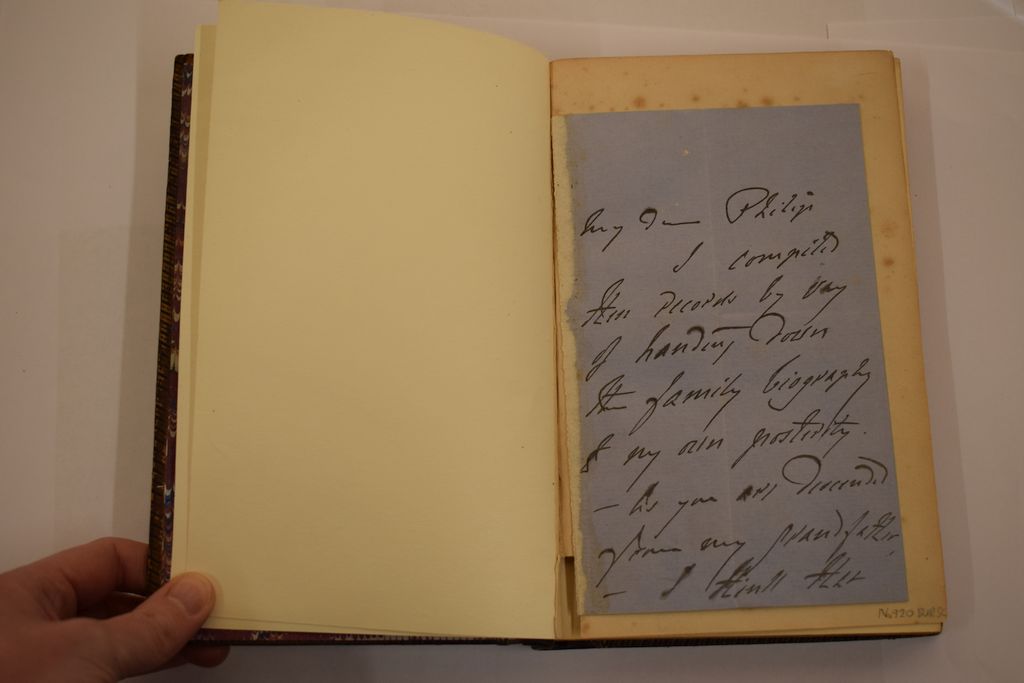 My Dear Philip
I compiled
these records by way
of handing down
the family biography
to my own posterity.
— As you are descended
from my grandfather
— I think that